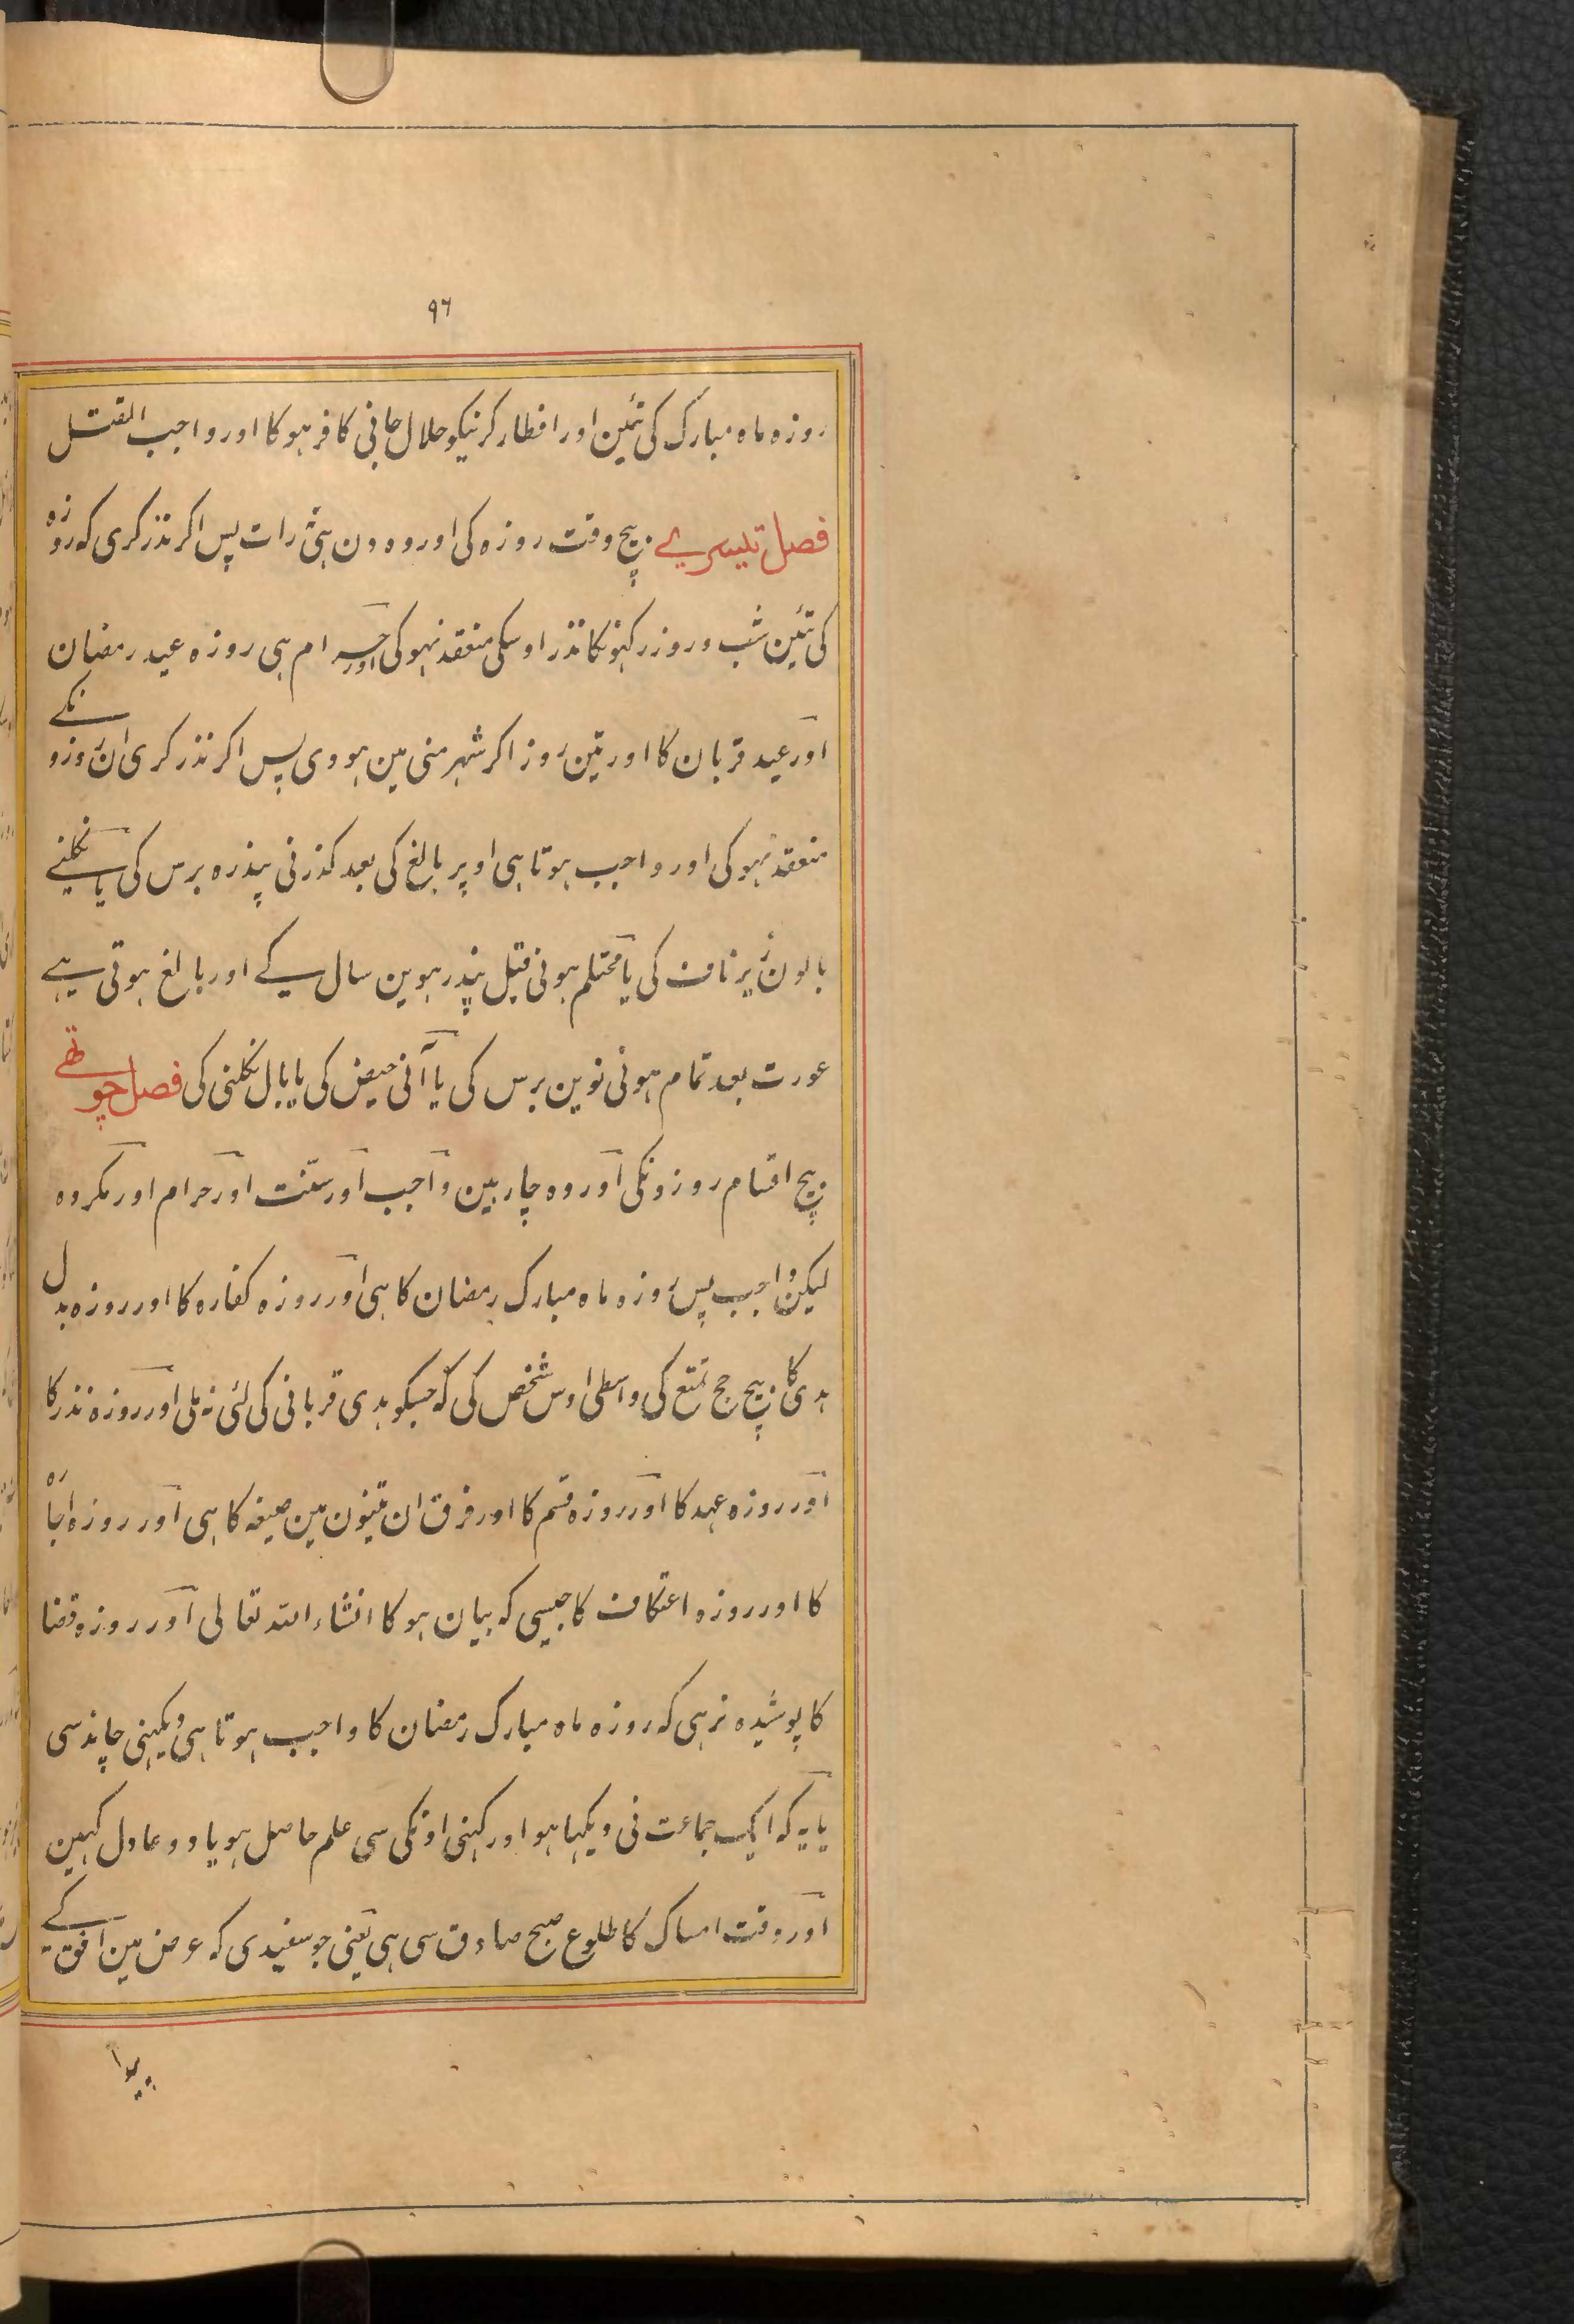 ۹۶
روزہ ماہ مبارک کی تئین اور افطار کرنیکو حلال جانی کافر ہوکا اور واجب القتل
فصل تیسرے بیچ وقت روزہ کی اور وہ دن ہی نہ رات پس اکر نذر کری کہ روزہ
کی تئین شب و روز رکہونکا نذر اوسکی منعقد نہوکی اور حرام ہی روزہ عید رمضان
اور عید قربان کا اور تین روز اکر شہر منی مین ہووی پس اکر نذر کری ان روزونکے
منعقد نہوکی اور واجب ہوتا ہی اوپر بالغ کی بعد کذرنی پندرہ برس کی یا نکلنے
بالون زیر ناف کی یا محتلم ہونی قبل پندرہوین سال کے اور بالغ ہوتی ہے
عورت بعد تمام ہونی نوین برس کی یا آنی حیض کی یا بال نکلنی کی فصل چوتھے
بیچ اقسام روزونکی اور وہ چار ہین واجب اور سنّت اور حرام اور مکروہ
لیکن واجب پس روزہ ماہ مبارک رمضان کا ہی اور روزہ کفارہ کا اور روزہ بدل
ہدی کا بیچ حج تمتع کی واسطی اوس شخص کی کہ جسکو ہدی قربانی کی لئی نہ ملی اور روزہ نذر کا
اور روزہ عہد کا اور روزہ قسم کا اور فرق ان تینون مین صیغہ کا ہی اور روزہ اجارہ
کا اور روزہ اعتکاف کا جیسی کہ بیان ہوکا انشاء اللہ تعالی اور روزہ قضا
کا پوشیدہ نرہی کہ روزہ ماہ مبارک رمضان کا واجب ہوتا ہی دیکہنی چاند سی
یا یہ کہ ایک جماعت نی دیکہا ہو اور کہنی اونکی سی علم حاصل ہو یا دو عادل کہین
اور وقت امساک کا طلوع صبح صادق سی ہی یعنی جو سفیدی کہ عرض مین افق کے
پیدا